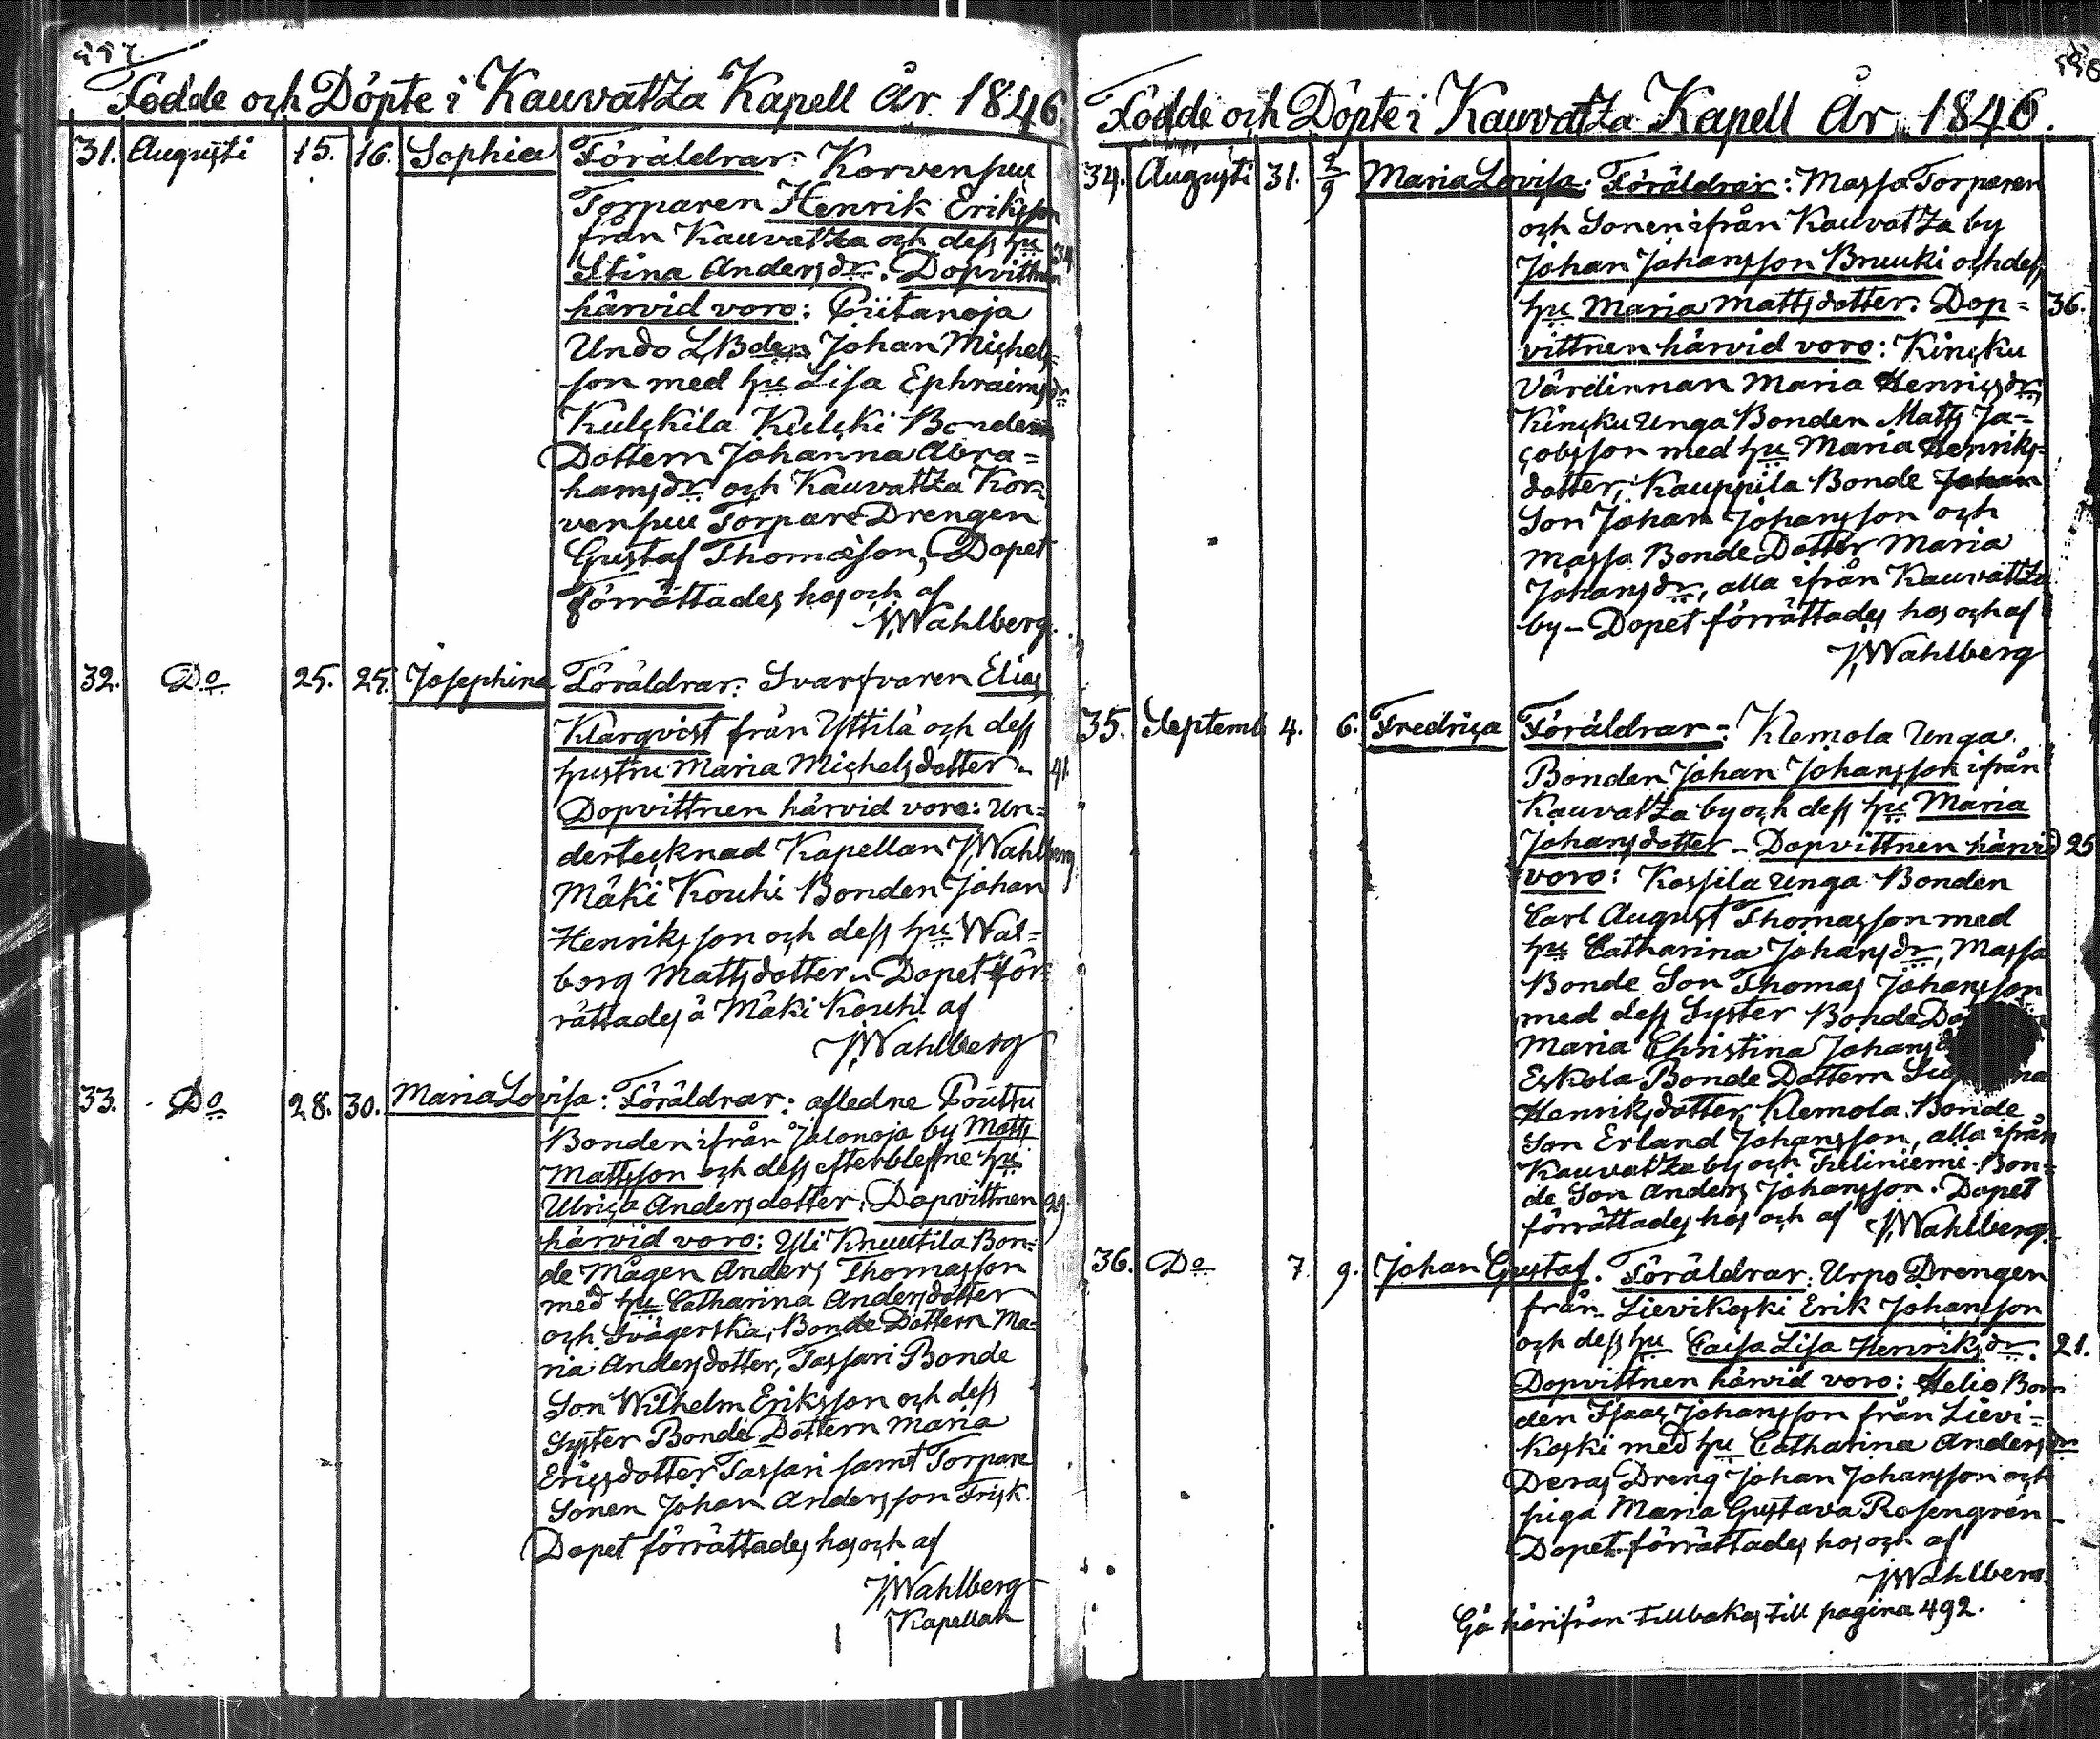 Födde och Döpte i Kauvatza Kapell År. 1846
31. Augusti 15. 16. Sophia Föräldrar: Korvensuu
Torparen Henrik Eriksson
från Kauvatza och dess hu 34
Stina Andersdr. Dopvittnen
härvid voro: Piitanoja
Undo LBden Johan Michels=
son med hu Lisa Ephraimsdr
Kulckila Kulcki Bonde
Dottern Johanna Abra=
hamsdr och Kauvatza Kor=
vensuu Torpare Drengen
Gustaf Thomasson, Dopet
förrättades hos och af
JWahlberg.
32. Do 25. 25. Josephina Föräldrar: Svarfvaren Elias
Klarqvist från Yttilä och dess
hustru Maria Michelsdotter. 41.
Dopvittnen härvid voro: Un=
dertecknad Kapellan JWahlberg
Mäki Kouhi Bonden Johan
Henriksson och dess hu Wal=
borg Mattsdotter. Dopet för=
rättades å Mäki Kouhi af
JWahlberg
33. Do 28. 30. Maria Lovisa: Föräldrar: afledne Pouttu
Bonden ifrån Jalonoja by Matts
Mattsson och dess efterblefne hu
Ulrica Andersdotter. Dopvittnen 29.
härvid voro: Yli Knuutila Bon=
de Mågen Anders Thomasson
med hu Catharina Andersdotter
och Svägerska, Bonde Dottern Ma=
ria Andersdotter, Tassari Bonde
Son Wilhelm Eriksson och dess
Syster Bonde Dottern Maria
Ericsdotter Tassari samt Torpare
Sonen Johan Andersson Frisk.
Dopet förrättades hos och af
JWahlberg
Kapellan
Födde och Döpte i Kauvatza Kapell År 1846.
34. Augusti 31. 2/9 Maria Lovisa: Föräldrar: Massa Torparen
och Sonen ifrån Kauvatza by
Johan Johansson Bruuki och dess
hu Maria Mattsdotter. Dop= 36.
vittnen härvid voro: Kincku
Värdinnan Maria Henricsdr
Kincku Unga Bonden Matts Ja=
cobsson med hu Maria Henriks=
dotter, Kauppila Bonde Johan
Son Johan Johansson och
Massa Bonde Dotter Maria
Johansdr, alla ifrån Kauvatza
by. Dopet förrättades hos och af
JWahlberg
35. Septemb 4. 6. Fredrica Föräldrar: Klemola Unga
Bonden Johan Johansson ifrån
Kauvatza by och dess hu Maria
Johansdotter. Dopvittnen härvid 25
voro: Kassila Unga Bonden
Carl August Thomasson med
hu Catharina Johansdr, Massa
Bonde Son Thomas Johansson
med dess Syster Bonde
Maria Christina
Eskola Bonde Dottern
Henriksdotter, Klemola Bonde
Son Erland Johansson, alla ifrån
Kauvatza by och Filiniemi Bon=
de Son Anders Johansson. Dopet
förrättades hos och af JWahlberg.
36. Do 7 9. Johan Gustaf. Föräldrar: Urpo Drengen
från Lievikoski Erik Johansson
och dess hu Caisa Lisa Henriksdr. 21.
Dopvittnen härvid voro: Helio Bon
den Isaac Johansson från Lievi=
koski med hu Catharina Andersdr
Deras Dreng Johan Johansson och
piga Maria Gustava Rosengrén
Dopet förrättades hos och af
JWahlberg.
Gå härifrån tillbakas till pagina 492.